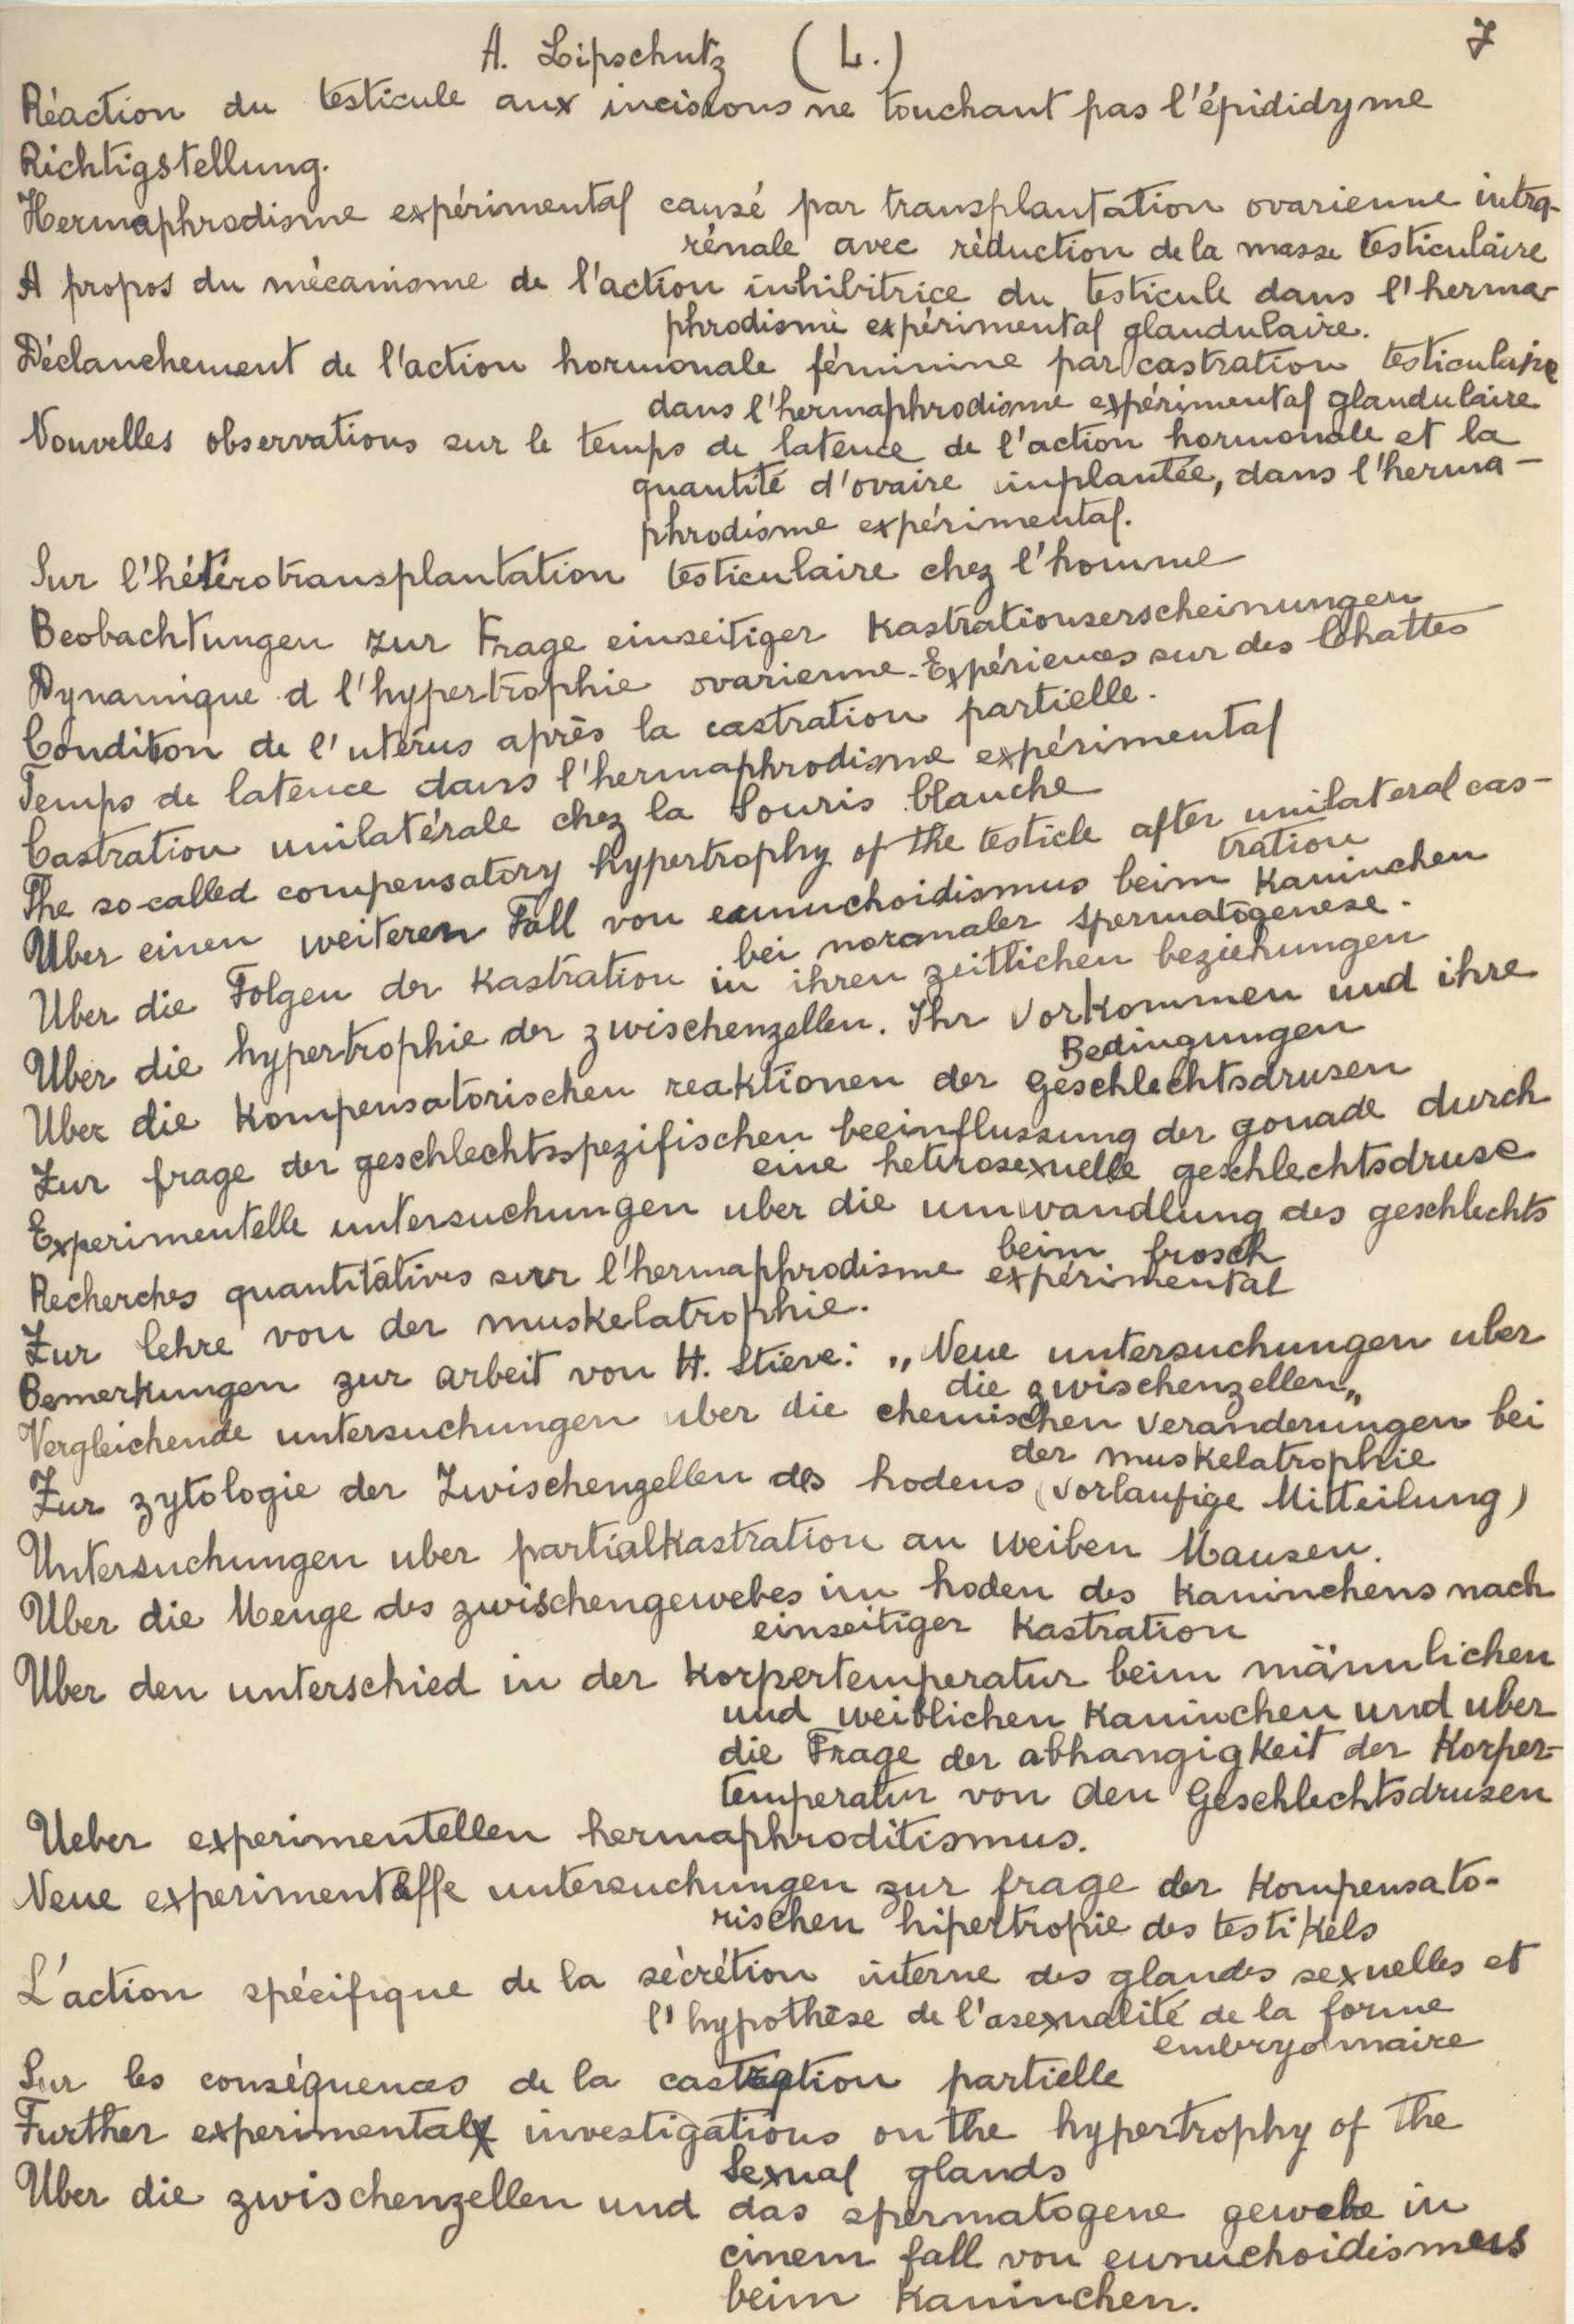 A. Lipschutz (L.) 7
Réaction du testicule aux incisions ne touchant pas l'épididyme
Richtigstellung.
Hermaphrodisme expérimental causé par transplantation ovarienne intra-
rénale avec réduction de la masse testiculaire
A propos du mécanisme de l'action inhibitrice du testicule dans l'herma-
phrodisme expérimental glandulaire.
Déclanchement de l'action hormonale féminine par castration testiculaire
dans l'hermaphrodisme expérimental glandulaire
Nouvelles observations sur le temps de latence de l'action hormonale et la
quantité d'ovaire inplantée, dans l'herma-
phrodisme expérimental.
Sur l'hétérotransplantation testiculaire chez l'homme
Beobachtungen zur Frage einseitiger Kastrationserscheinungen
Dynamique d l'hypertrophie ovarienne - Expériences sur des Chattes
Conditon de l'utérus après la castration partielle.
Temps de latence dans l'hermaphrodisme expérimental
Castration unilatérale chez la Souris blanche
The so-called compensatory hypertrophy of the testicle after unilateral cas-
tration
Uber einen weiteren Fall von eunuchoidismus beim Kaninchen
bei normaler spermatogenese.
Uber die Folgen der Kastration in ihren zeitlichen beziehungen
Uber die hypertrophie der zwischenzellen. Ihr Vorkommen und ihre
Bedingungen
Uber die Kompensatorischen reaktionen der geschlechtsdrusen
Zur frage der geschlechtsspezifischen beeinflussung der gonade durch
eine heterosexuelle geschlechtsdruse
Experimentelle untersuchungen uber die umwandlung des geschlechts
beim frosch
Recherches quantitatives sur l'hermaphrodisme expérimental
Zur lehre von der muskelatrophie.
Bemerkungen zur arbeit von H. Stieve: „Neue untersuchungen uber
die zwischenzellen„
Vergleichende untersuchungen uber die chemischen veranderungen bei
der muskelatrophie
Zur zytologie der Zwischenzellen des hodens (vorlaufige Mitteilung)
Untersuchungen uber partialkastration an weiben Mausen.
Uber die Menge des zwischengewebes im hoden des Kaninchens nach
einseitiger Kastration
Uber den unterschied in der Korpertemperatur beim männlichen
und weiblichen Kaninchen und uber
die Frage der abhangigkeit der Korper-
temperatur von den Geschlechtsdrusen
Ueber experimentellen hermaphroditismus.
Neue experimentelle untersuchungen zur frage der Kompensato-
rischen hipertropie des testikels
L'action spécifique de la sécrétion interne des glandes sexuelles et
l'hypothèse de l'asexualité de la forme
embryonnaire
Sur les conséquences de la castration partielle
Further experimental investigations on the hypertrophy of the
Sexual glands
Uber die zwischenzellen und das spermatogene gewebe in
einem fall von eunuchoidismus
beim Kaninchen.